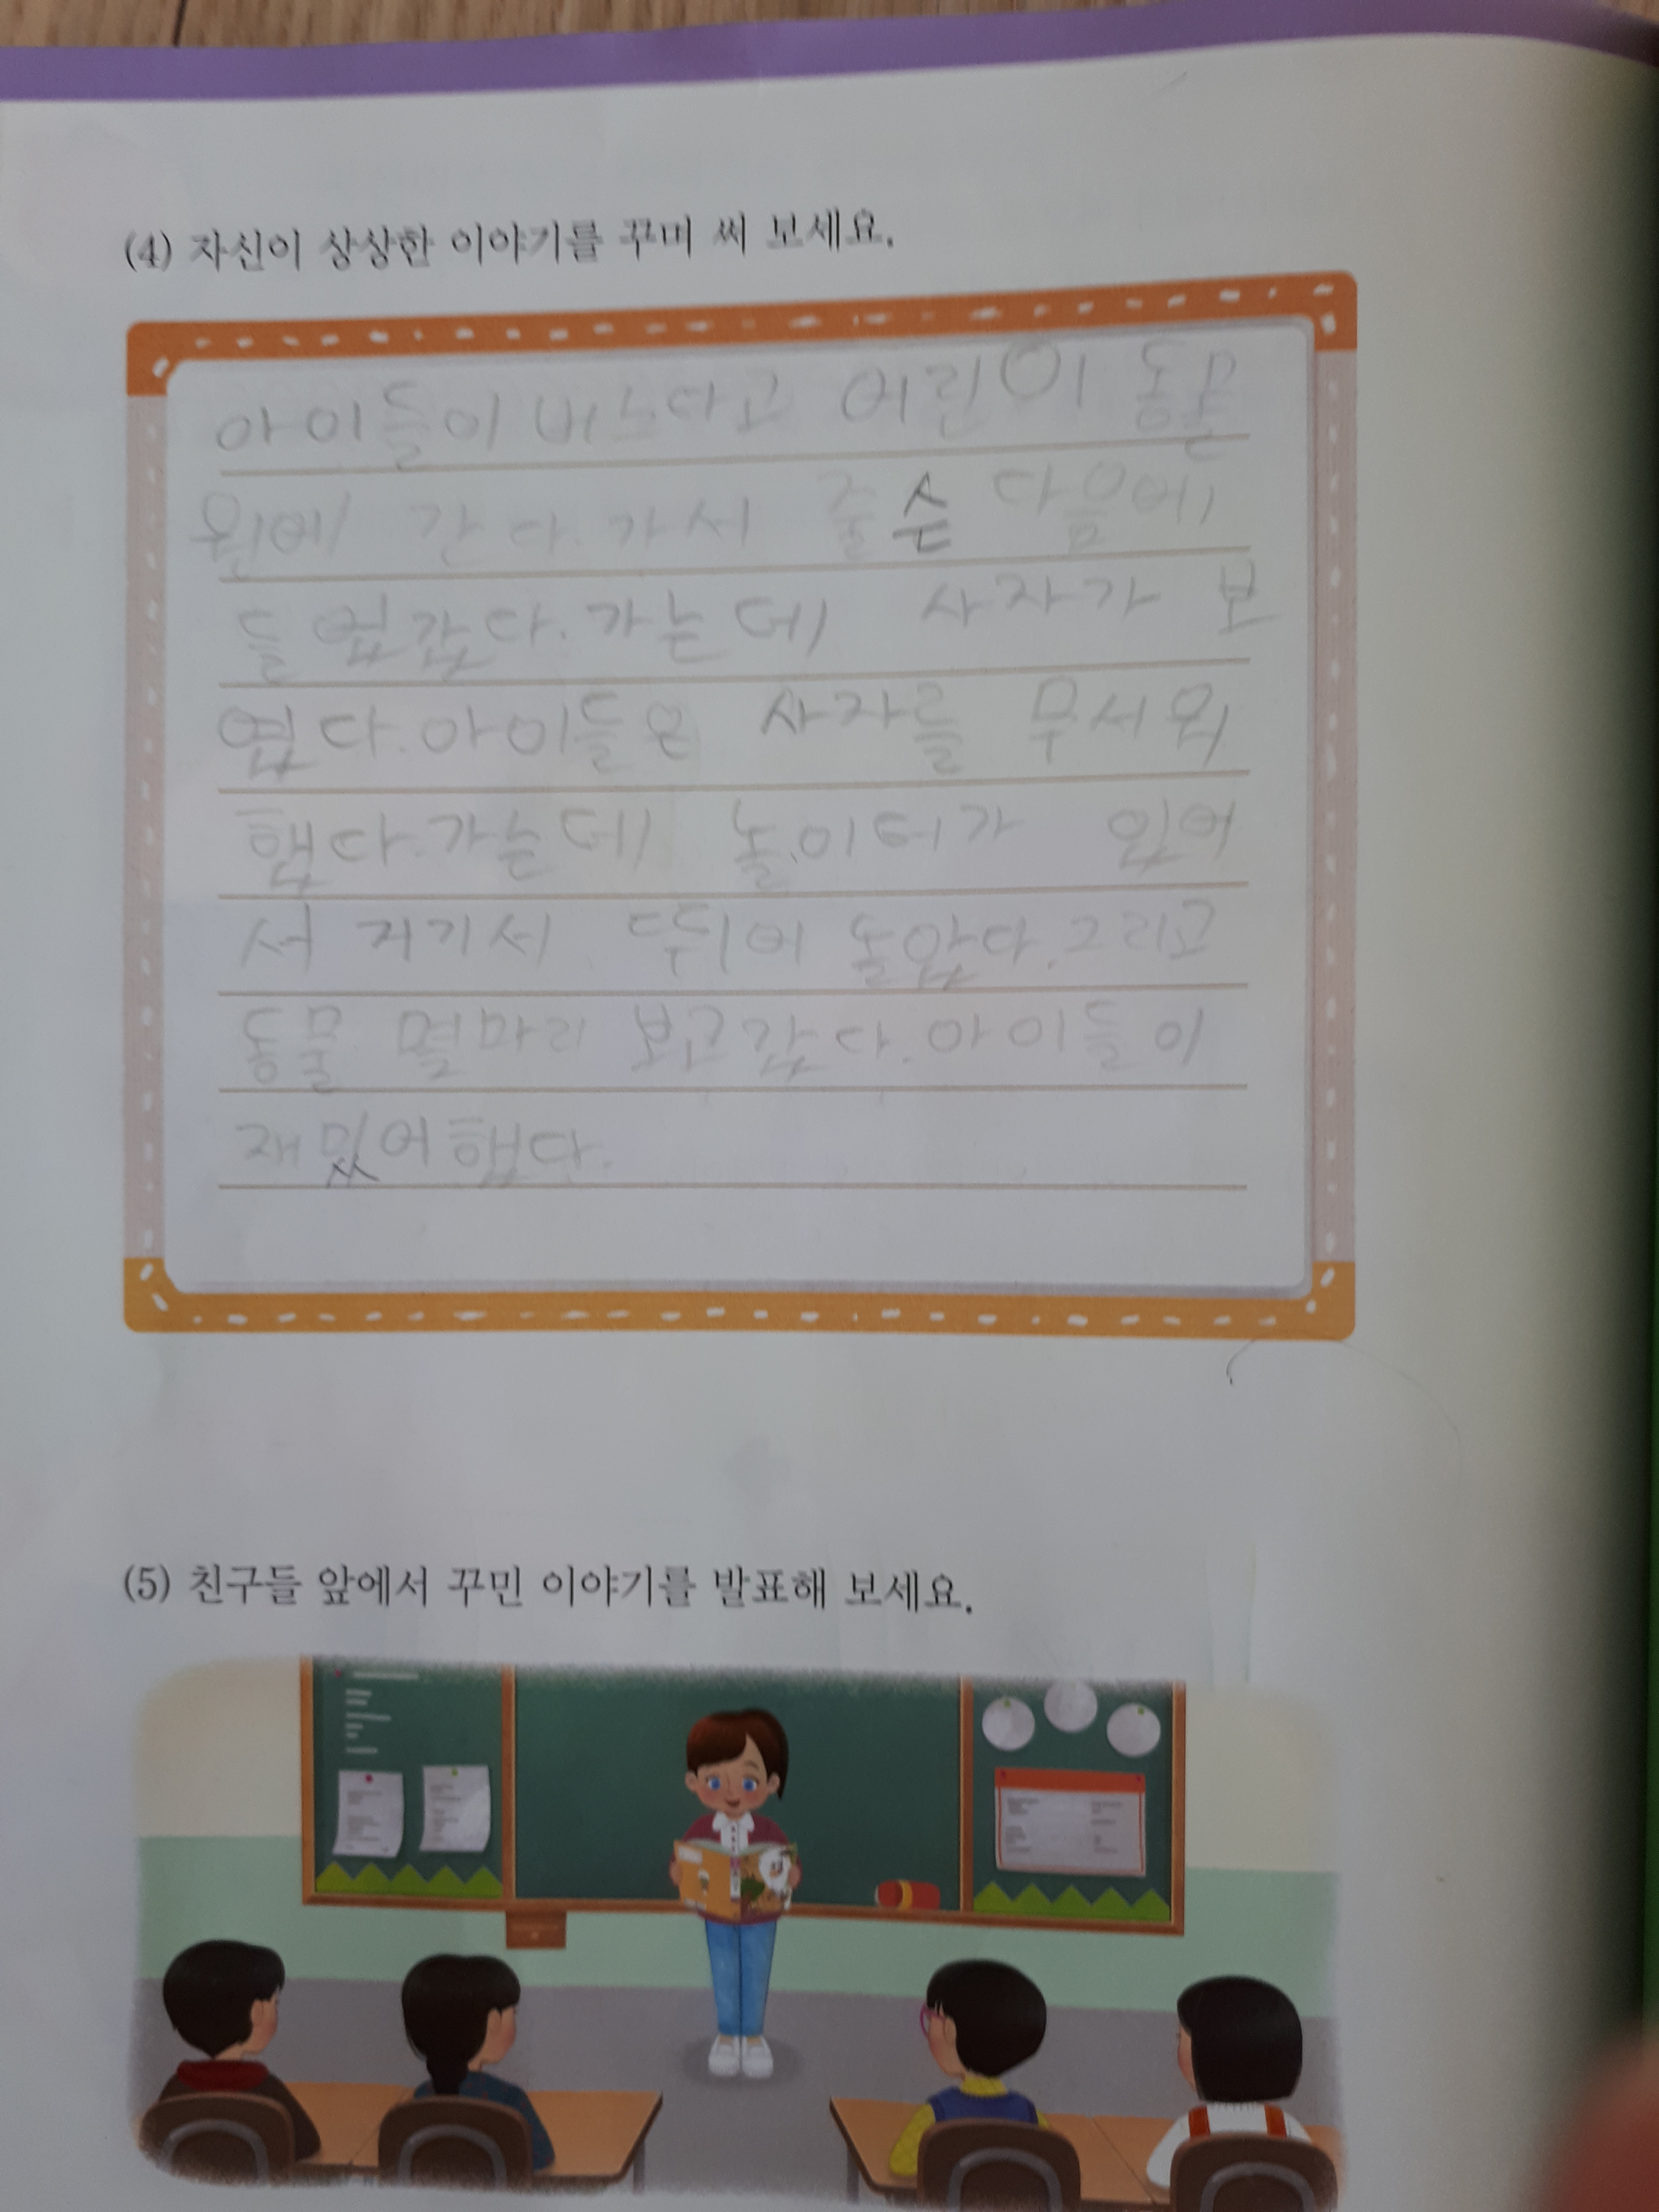 (4) 자신이 상상한 이야기를 꾸며 써 보세요.
아이들이 버스타고 어린이 동물
원에 간다. 가서 줄슨 다음에
들어갔다. 가는데 사자가 보
였다. 아이들은 사자를 무서워
했다. 가는데 놀이터가 있어
서 저기서 뛰어 놀았다. 그리고
동물 몇마리 보고갔다. 아이들이
재밌어했다.
(5) 친구들 앞에서 꾸민 이야기를 발표해 보세요.